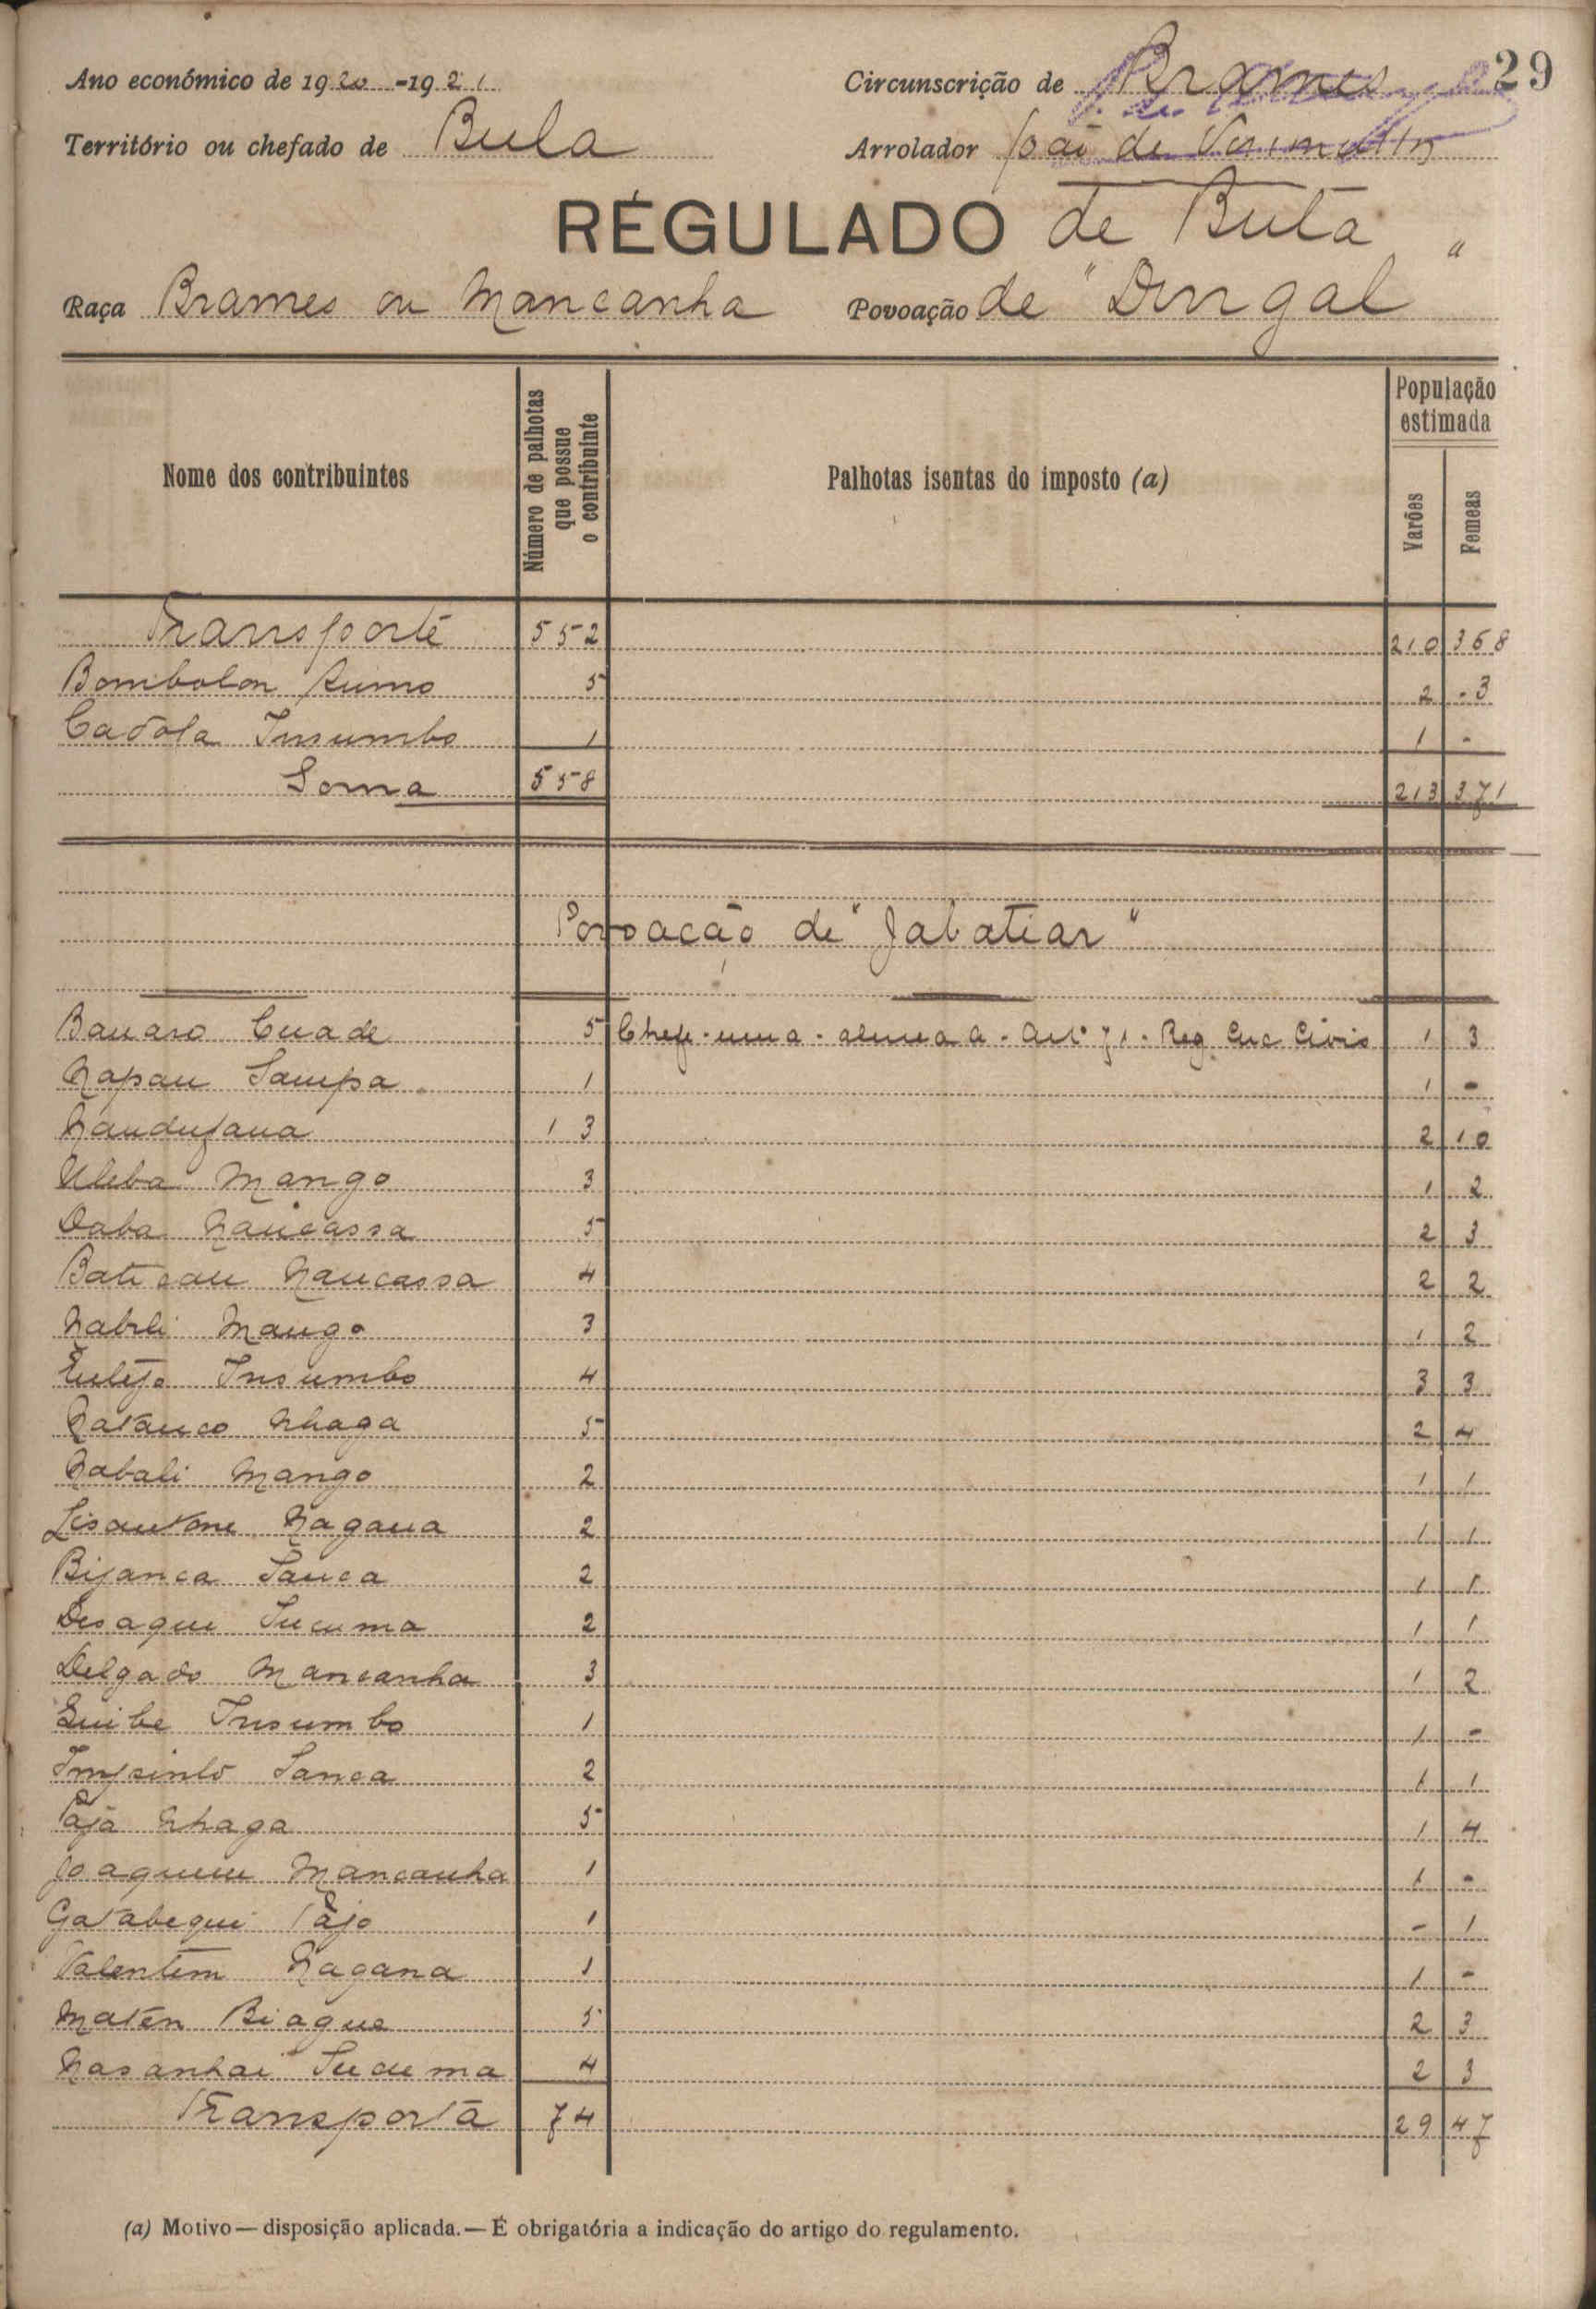 29
Ano económico de 1920-1921
Circunscrição de Brames
Território ou chefado de Bula
Arrolador de
RÉGULADO de Bula
Raça Brames ou Mancanha Povoação de "Dungal"
Nome dos contribuintes
Número de palhotas que possue o contribuinte
Palhotas isentas do imposto (a)
População estimada
Varões
Femeas
Transporte 552 210 368
Bombolon 5 2 - 3
Cadola Insumbo 1 1 -
Soma 558 213 371
Povoação de "Jabatiar"
Banaro Cuade 5 Chefe - uma - alinea a - Artº 71 - Reg. Circ. Civis 1 3
Napau Sampa 1 1 -
13 2 10
Uleba Mango 3 1 2
Daba Naucassa 5 2 3
Naucassa 4 2 2
Nabili Mango 3 1 2
Insumbo 4 3 3
Nhaga 5 2 4
Nabali Mango 2 1 1
Nagana 2 1 1
Bijanca Sanca 2 1 1
Desaque Sucuma 2 1 1
Delgado Mancanha 3 1 2
Quibe Insumbo 1 1 -
Sanca 2 1 1
Pajá Nhaga 5 1 4
Joaquim Mancanha 1 1 -
Gatabequi Pajo 1 - 1
Valentim Nagana 1 1 -
Matên Biague 5 2 3
Nasanhai 4 2 3
Transporta 74 29 47
(a) Motivo — disposição aplicada. — É obrigatória a indicação do artigo do regulamento.